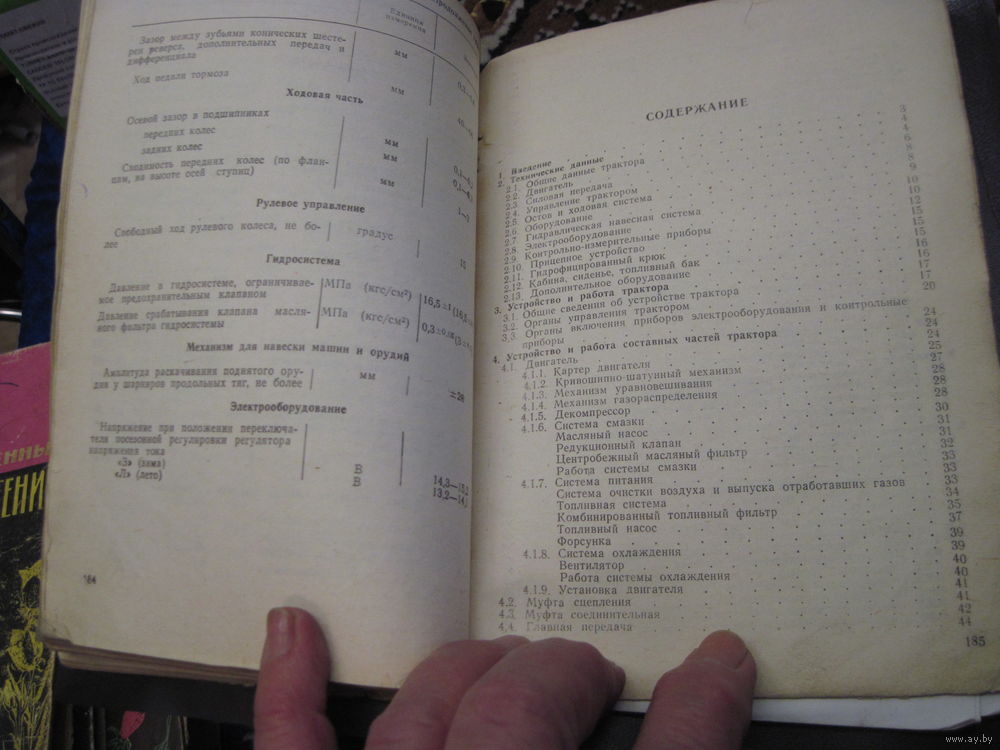 Единица
измерения
Зазор между зубьями конических шесте-
рен реверса, дополнительных передач и
дифференциала
мм
Ход педали тормоза
мм
Ходовая часть
Осевой зазор в подшипниках
передних колес
мм
задних колес
мм
Сходимость передних колес (по флан-
цам, на высоте осей ступиц)
мм
Рулевое управление
Свободный ход рулевого колеса, не бо-
лее
градус
15
Гидросистема
Давление в гидросистеме, ограничивае-
мое предохранительным клапаном
МПа (кгс/см²)
Давление срабатывания клапана масля-
ного фильтра гидросистемы
МПа (кгс/см²)
Механизм для навески машин и орудий
Амплитуда раскачивания поднятого ору-
дия у шарниров продольных тяг, не более
мм
±20
Электрооборудование
Напряжение при положении переключа-
теля посезонной регулировки регулятора
напряжения тока
«З» (зима)
В
14,3—15,2
«Л» (лето)
В
184
СОДЕРЖАНИЕ
1. Введение 3
2. Технические данные 4
2.1. Общие данные трактора 4
2.2. Двигатель 6
2.3. Силовая передача 8
2.4. Управление трактором 8
2.5. Остов и ходовая система 9
2.6. Оборудование 10
2.7. Гидравлическая навесная система 10
2.8. Электрооборудование 12
2.9. Контрольно-измерительные приборы 15
2.10. Прицепное устройство 15
2.11. Гидрофицированный крюк 15
2.12. Кабина, сиденье, топливный бак 16
2.13. Дополнительное оборудование 16
3. Устройство и работа трактора 17
3.1. Общие сведения об устройстве трактора 17
3.2. Органы управления трактором 20
3.3. Органы включения приборов электрооборудования и контрольные
приборы 24
4. Устройство и работа составных частей трактора 24
4.1. Двигатель 24
4.1.1. Картер двигателя 25
4.1.2. Кривошипно-шатунный механизм 27
4.1.3. Механизм уравновешивания 28
4.1.4. Механизм газораспределения 28
4.1.5. Декомпрессор 28
4.1.6. Система смазки 30
Масляный насос 31
Редукционный клапан 31
Центробежный масляный фильтр 32
Работа системы смазки 33
4.1.7. Система питания 33
Система очистки воздуха и выпуска отработавших газов 33
Топливная система 34
Комбинированный топливный фильтр 35
Топливный насос 37
Форсунка 39
4.1.8. Система охлаждения 39
Вентилятор 40
Работа системы охлаждения 40
4.1.9. Установка двигателя 41
4.2. Муфта сцепления 41
4.3. Муфта соединительная 42
4.4. Главная передача 44
185
www.ay.by